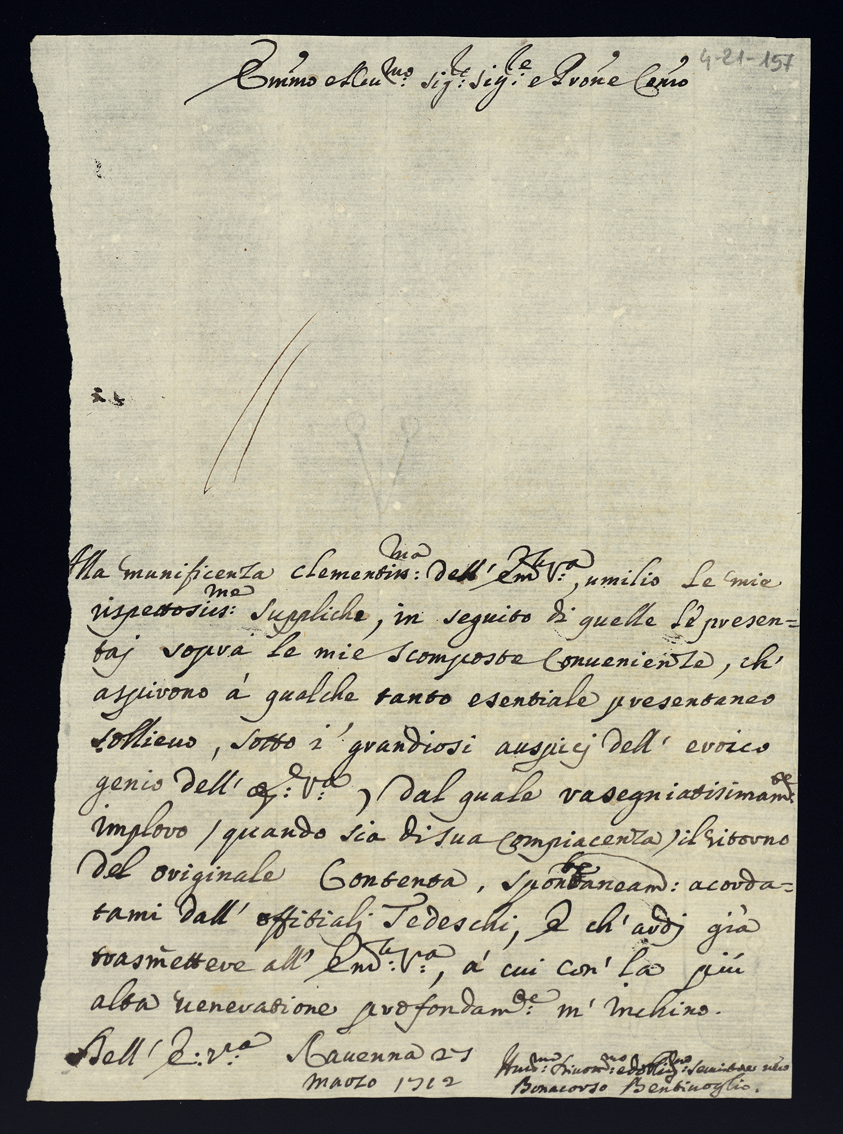 4-21-157
Emmo e Reumo: Sigre: Sigle: e Prone
Alla munificenza clementisma: dell' Emza Vra, umilio le mie
rispettosisme: Suppliche, in seguito di quelle lè presen=
taj sopra le mie scomposte Conuenienze, ch'
aspirono à qualche tanto esentiale presentaneo
sollieuo, sotto i' grandiosi auspicj dell' eroico
genio dell' E: Vra, dal quale rasegniatisimamte:
imploro / quando sia di sua Compiacenza / il ritorno
del originale Contenta, spontaneamte: acorda=
tami dall' offitialj Tedeschi, E ch' ardj già
trasmettere all' Emza: Vra, à cui con' la più
alta ueneratione profondamte: m' Inchino.
Dell' E: Vra Rauenna 27
Marzo 1712
Bonacorso Bentiuoglio.